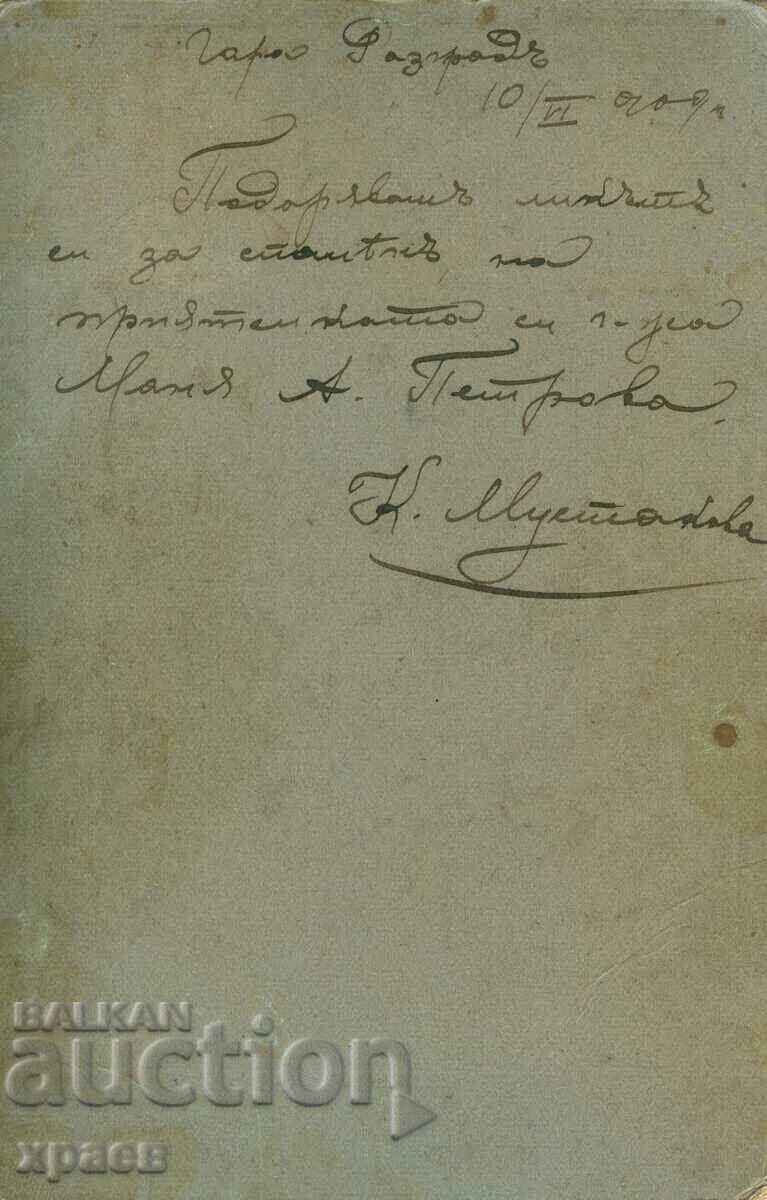 Гара Разградъ
10/VI 909 г.
Подарявамъ ликътъ
си за споменъ на
приятелката си г-жа
Маня А. Петрова.
К. Мустакова
BALKAN
auction
храев